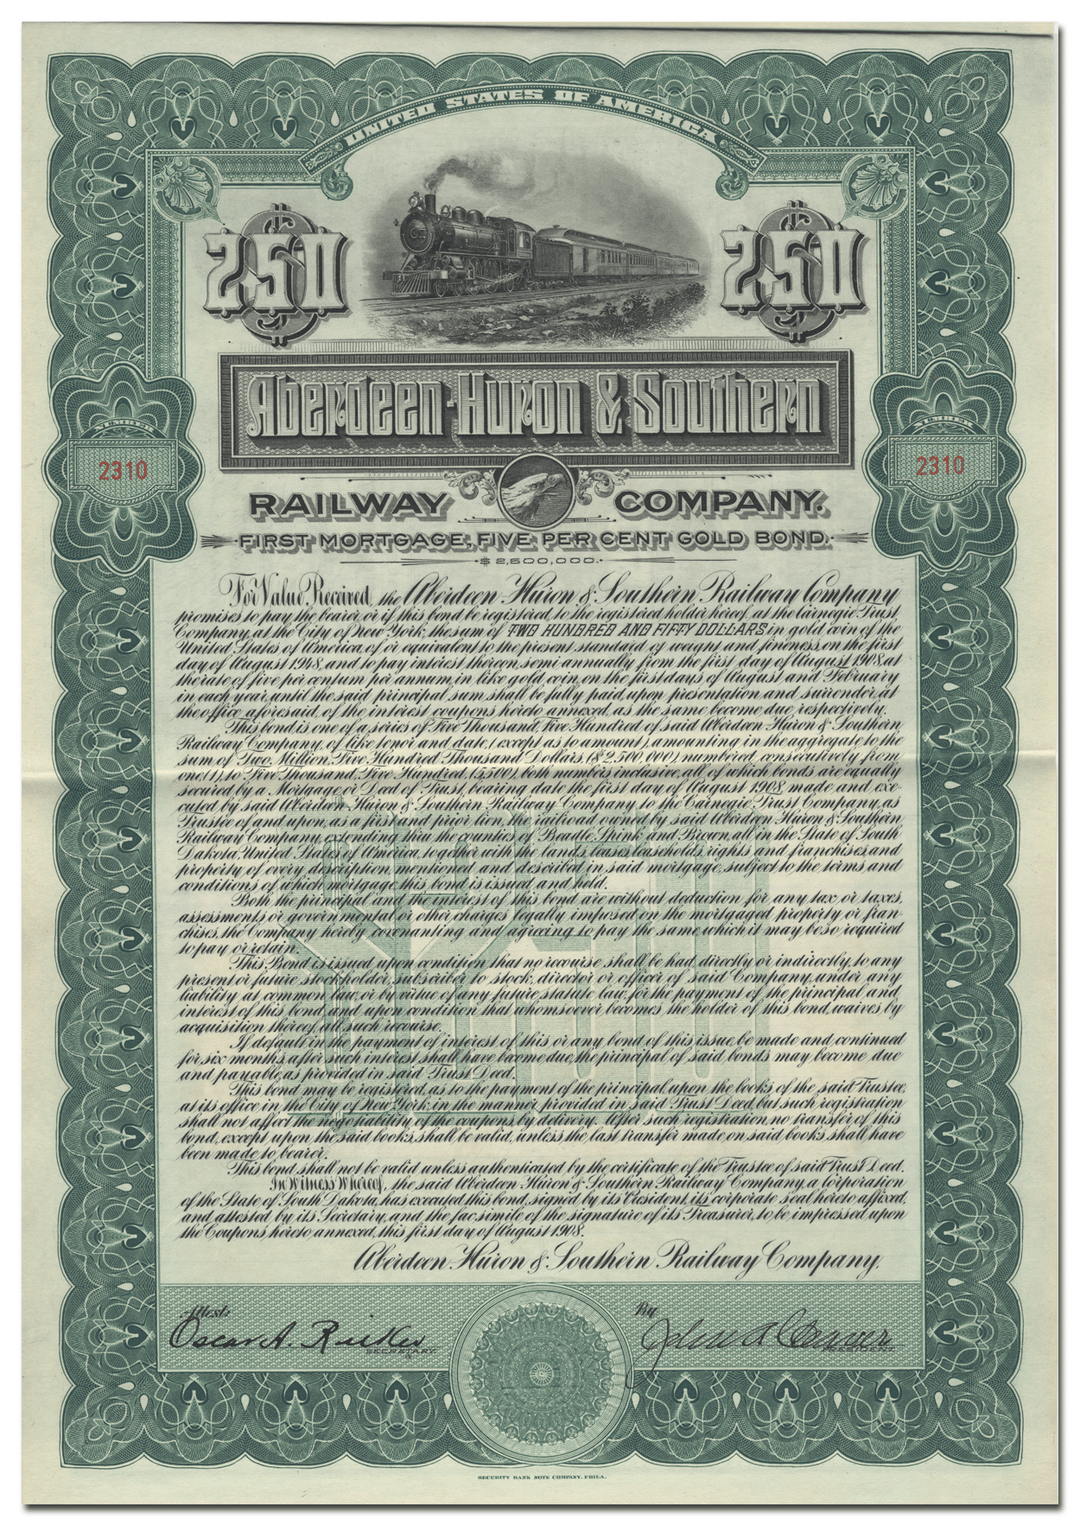 UNITED STATES OF AMERICA
250 250
Aberdeen-Huron & Southern
NUMBER NUMBER
2310 2310
RAILWAY COMPANY.
FIRST MORTGAGE, FIVE PER CENT GOLD BOND.
$2,500,000.
For Value Received, the Aberdeen, Huron & Southern Railway Company
promises to pay the bearer, or if this bond be registered, to the registered holder hereof, at the Carnegie Trust
Company, at the City of New York, the sum of TWO HUNDRED AND FIFTY DOLLARS in gold coin of the
United States of America, of or equivalent to the present standard of weight and fineness, on the first
day of August 1948, and to pay interest thereon, semi annually from the first day of August 1908, at
the rate of five per centum per annum, in like gold coin, on the first days of August and February
in each year, until the said principal sum, shall be fully paid, upon presentation and surrender, at
the office aforesaid, of the interest coupons hereto annexed, as the same become due, respectively.
This bond is one of a series of Five Thousand, Five Hundred of said Aberdeen-Huron & Southern
Railway Company, of like tenor and date, (except as to amount), amounting in the aggregate to the
sum of Two Million, Five Hundred Thousand Dollars, ($2,500,000) numbered consecutively from
one (1), to Five Thousand, Five Hundred, (5,500), both numbers inclusive, all of which bonds are equally
secured by a Mortgage or Deed of Trust, bearing date the first day of August 1908, made and exe-
cuted by said Aberdeen-Huron & Southern Railway Company to the Carnegie Trust Company, as
Trustee of and upon, as a first and prior lien, the railroad owned by said Aberdeen, Huron & Southern
Railway Company, extending thru the counties of Beadle, Spink and Brown, all in the State of South
Dakota, United States of America, together with the lands, leases, leaseholds, rights and franchises, and
property of every description, mentioned and described in said mortgage, subject to the terms and
conditions of which mortgage, this bond is issued and held.
Both the principal and the interest of this bond are without deduction for any tax or taxes,
assessments or governmental or other charges legally imposed on the mortgaged property or fran-
chises, the Company hereby covenanting and agreeing to pay the same, which it may be so required
to pay or retain.
This Bond is issued upon condition that no recourse shall be had, directly or indirectly, to any
present or future stockholder, subscriber to stock, director or officer of said Company, under any
liability at common law, or by virtue of any future statute law, for the payment of the principal and
interest of this bond, and upon condition that whomsoever becomes the holder of this bond, waives by
acquisition thereof, all such recourse.
If default in the payment of interest of this or any bond of this issue, be made and continued
for six months, after such interest shall have become due, the principal of said bonds may become due
and payable, as provided in said Trust Deed.
This bond may be registered, as to the payment of the principal, upon the books of the said Trustee,
at its office in the City of New York, in the manner, provided in said Trust Deed, but such registration
shall not affect the negotiability of the coupons, by delivery. After such registration, no transfer of this
bond, except upon the said books, shall be valid, unless the last transfer made, on said books, shall have
been made to bearer.
This bond shall not be valid unless authenticated by the certificate of the Trustee of said Trust Deed.
In Witness Whereof, the said Aberdeen, Huron & Southern Railway Company, a Corporation
of the State of South Dakota, has executed this bond, signed by its President, its corporate seal hereto affixed,
and attested by its Secretary, and the facsimile of the signature of its Treasurer, to be impressed upon
the Coupons hereto annexed, this first day of August 1908.
Aberdeen, Huron & Southern Railway Company,
Attest: By
Oscar A. SECRETARY. John A. PRESIDENT.
SECURITY BANK NOTE COMPANY, PHILA.